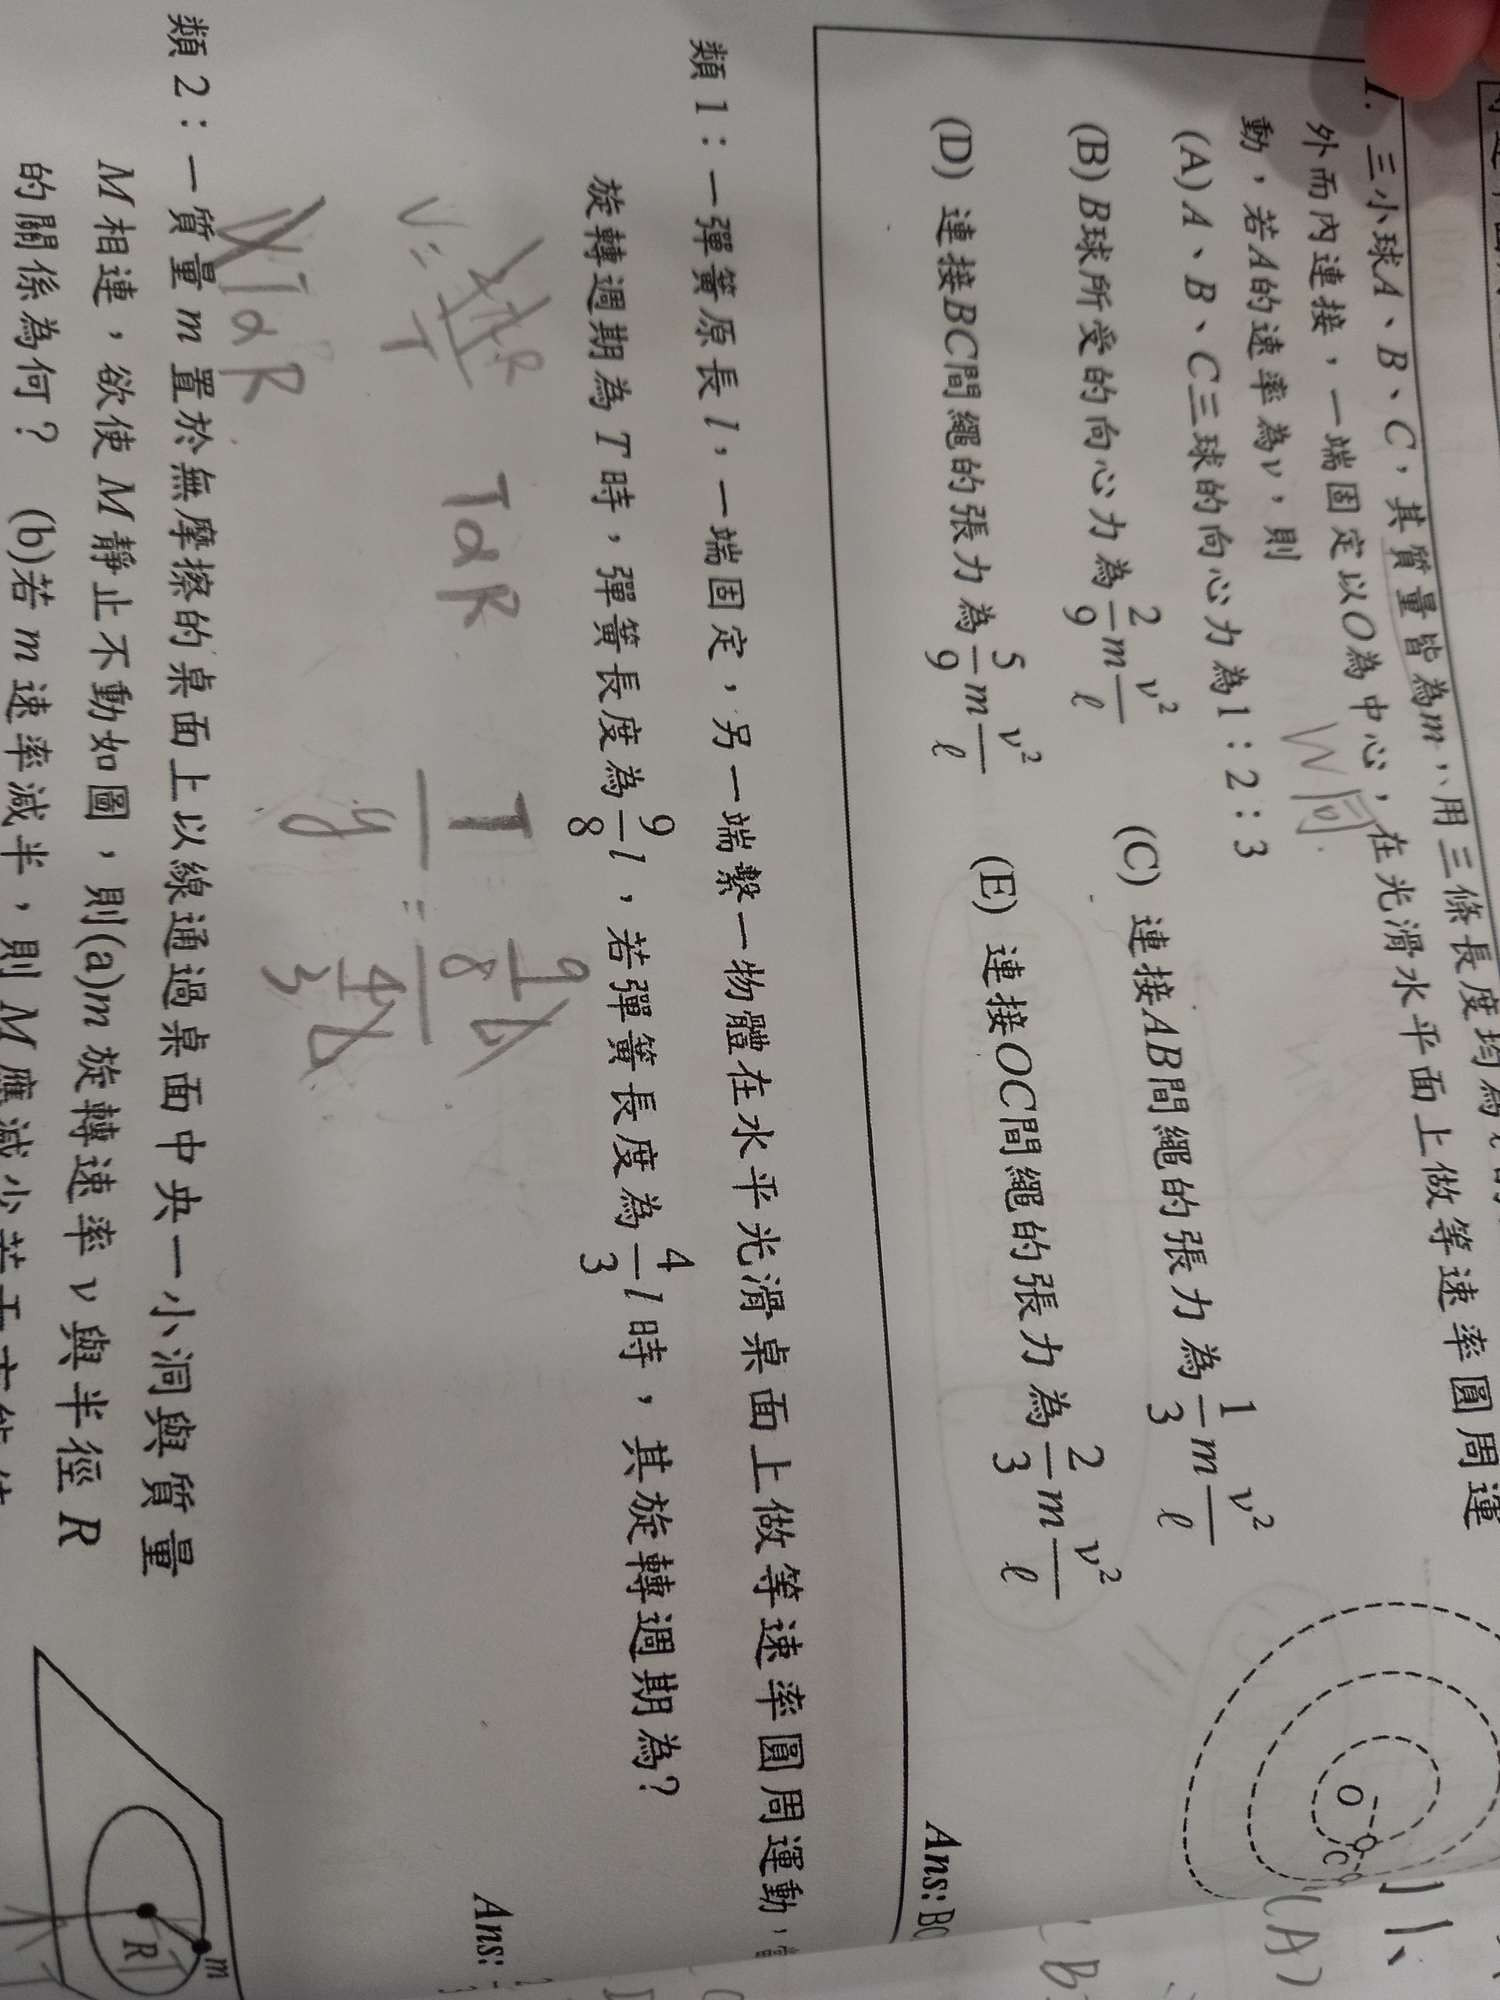 1. 三小球A、B、C，其質量皆為m，用三條長度均為ℓ
外而內連接，一端固定以O為中心，在光滑水平面上做等速率圓周運
動，若A的速率為v，則
W同
(A) A、B、C三球的向心力為1：2：3
(B) B球所受的向心力為2/9 m v²/ℓ
(C) 連接AB間繩的張力為1/3 m v²/ℓ
(D) 連接BC間繩的張力為5/9 m v²/ℓ
(E) 連接OC間繩的張力為2/3 m v²/ℓ
O
C
Ans: BC
(A)
B
類1：一彈簧原長l，一端固定，另一端繫一物體在水平光滑桌面上做等速率圓周運動，當
旋轉週期為T時，彈簧長度為9/8 l，若彈簧長度為4/3 l時，其旋轉週期為？
Ans:
V = 2πR/T
TαR
T/y = 9/8 l / 4/3 l
TαR
類2：一質量m置於無摩擦的桌面上以線通過桌面中央一小洞與質量
M相連，欲使M靜止不動如圖，則(a)m旋轉速率v與半徑R
的關係為何？ (b)若m速率減半，則M應減少若干方能使
m
R